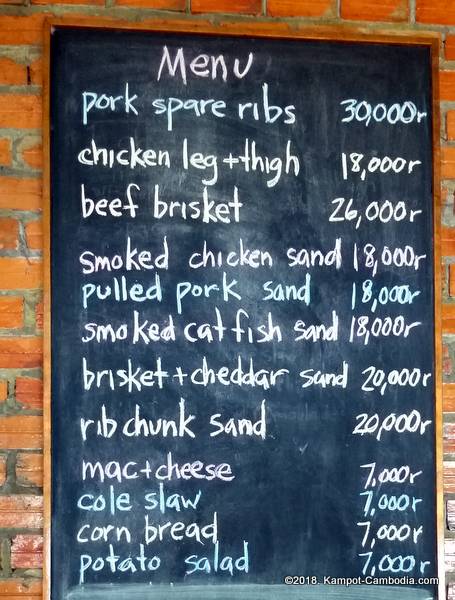 Menu
pork spare ribs 30,000r
chicken leg+thigh 18,000r
beef brisket 26,000r
smoked chicken sand 18,000r
pulled pork sand 18,000r
smoked catfish sand 18,000r
brisket+cheddar sand 20,000r
rib chunk sand 20,000r
mac+cheese 7,000r
cole slaw 7,000r
corn bread 7,000r
potato salad 7,000r
©2018. Kampot-Cambodia.com